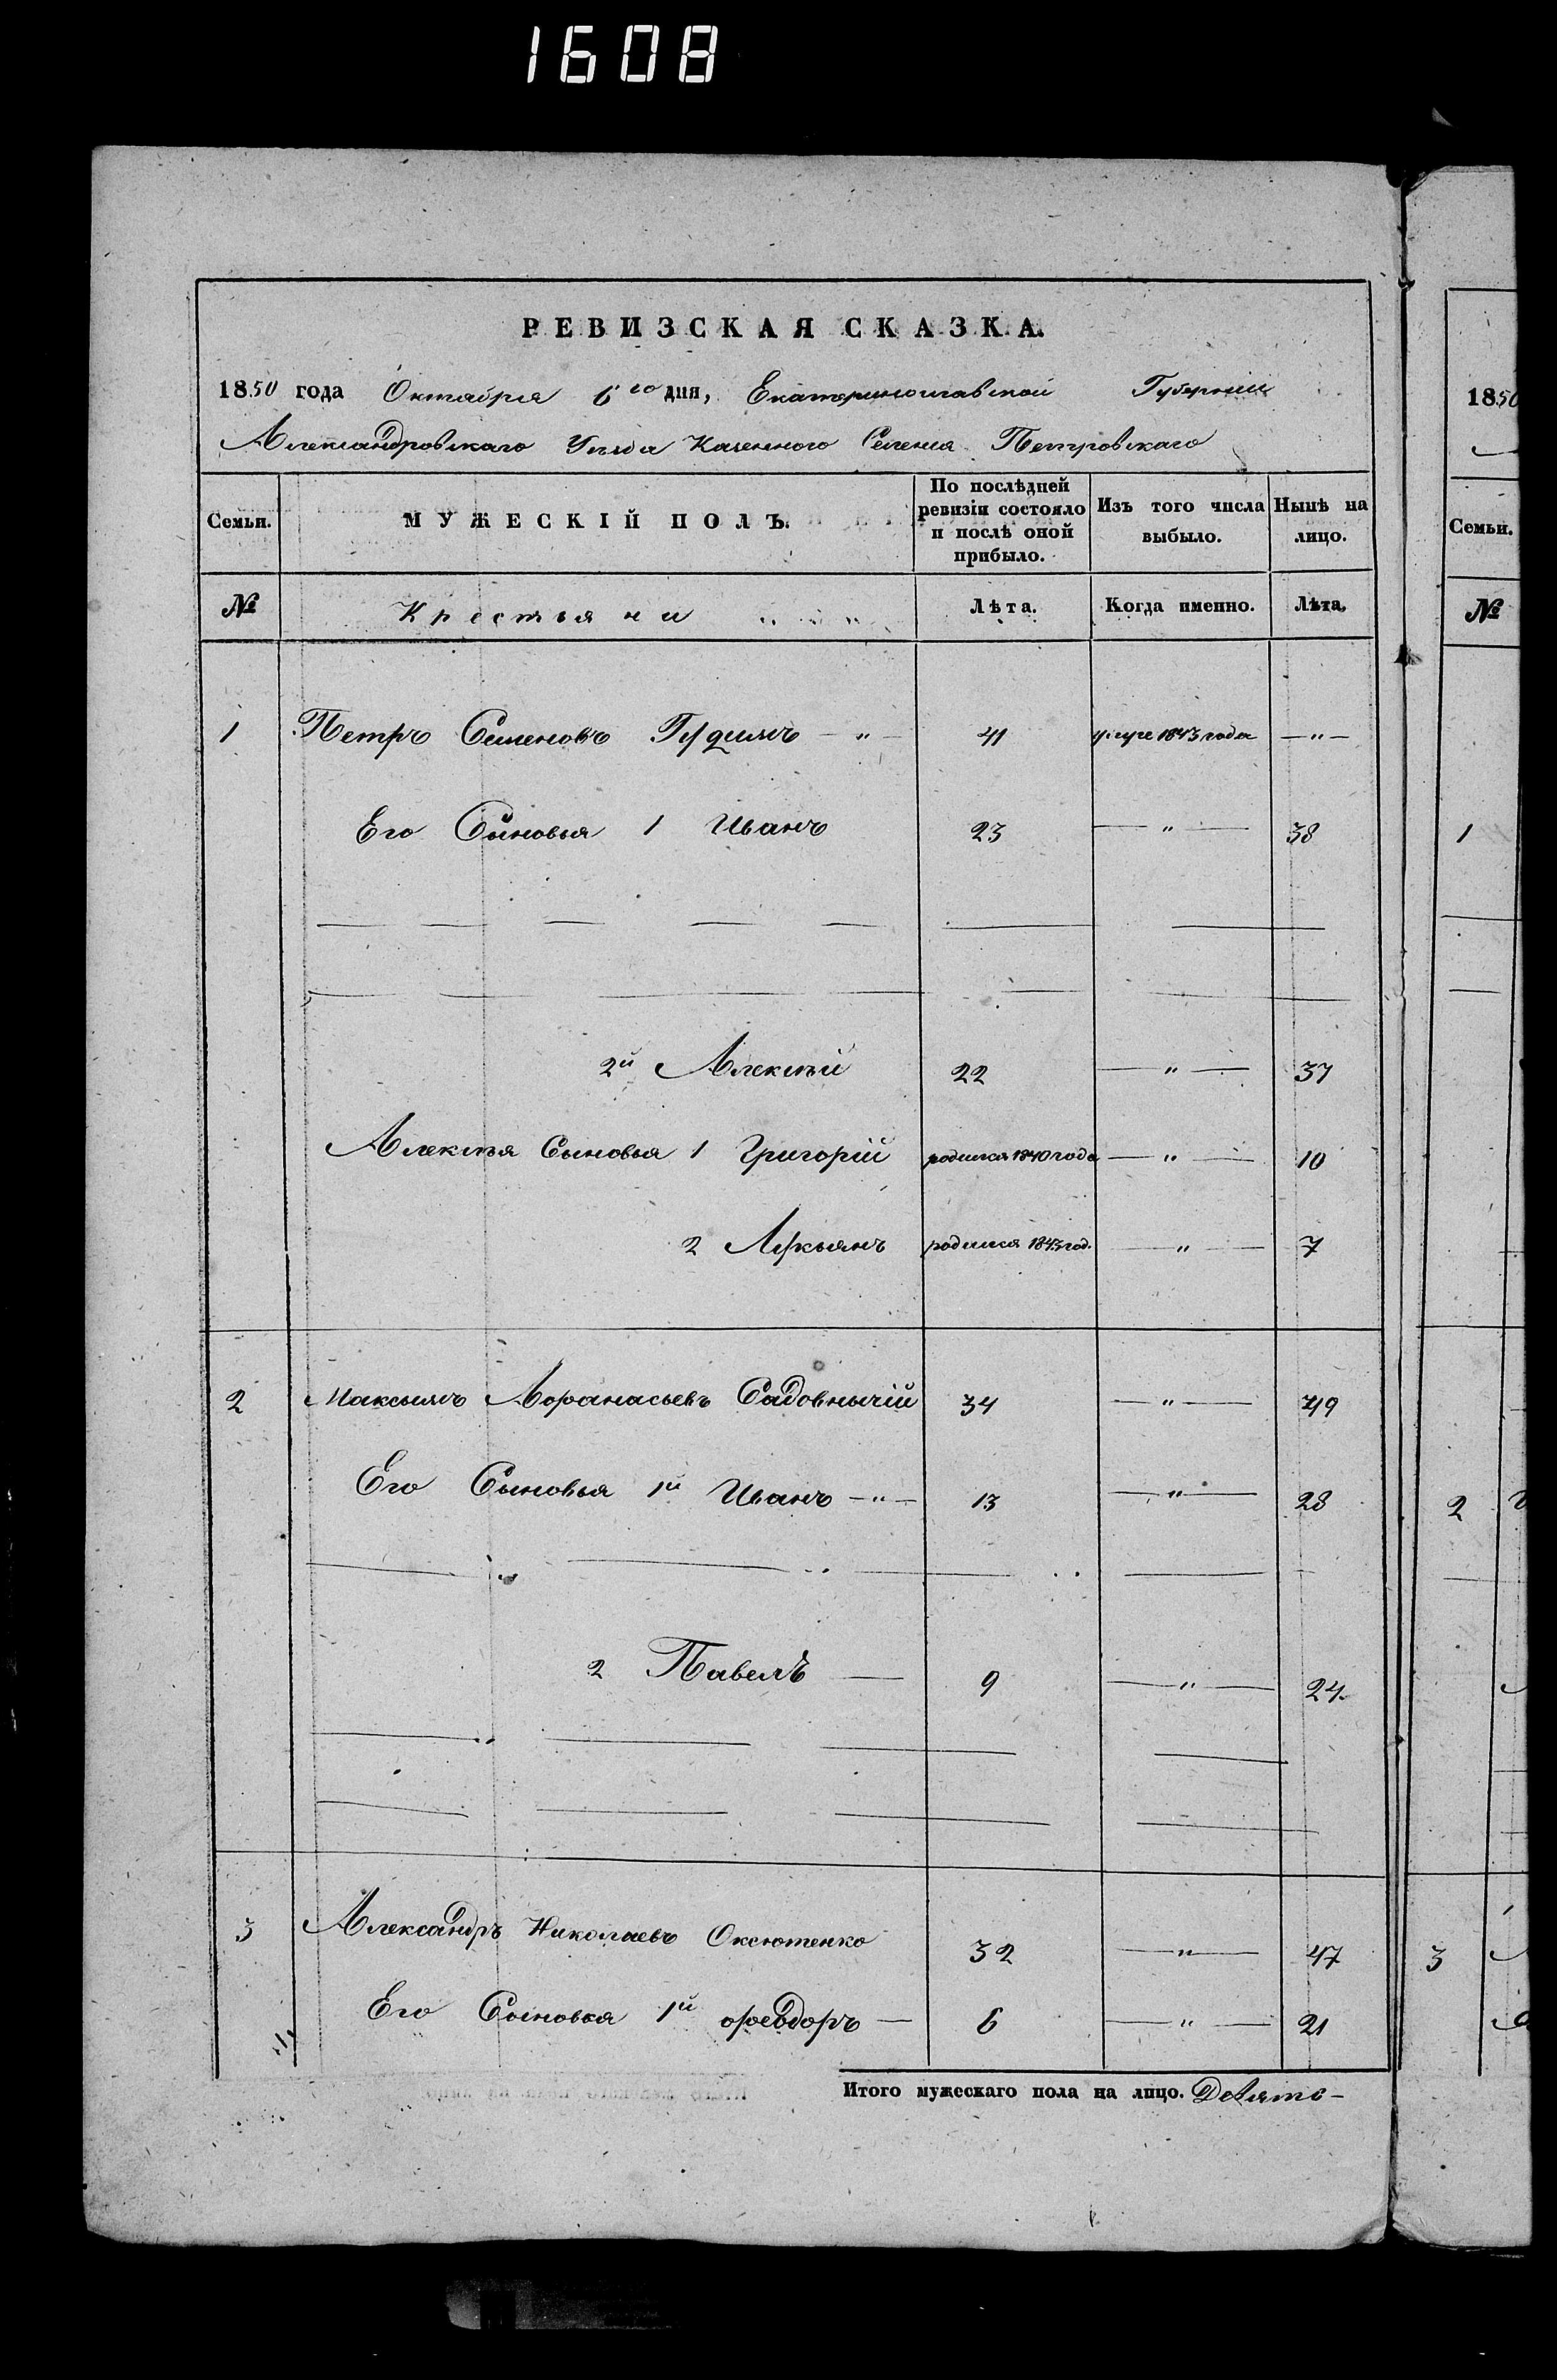 1608
РЕВИЗСКАЯ СКАЗКА.
1850 года Октября 6го дня, Екатеринославской Губернии
Александровскаго Уѣзда Казенного Селения Петровскаго
Семьи. МУЖЕСКІЙ ПОЛЪ. По послѣдней ревизіи состояло и послѣ оной прибыло. Изъ того числа выбыло. Нынѣ на лицо.
№ Крестьяни Лѣта. Когда именно. Лѣта.
1 Петръ Семеновъ Гудимъ — " — 41 умре 1843 года — " —
Его Сыновья 1 Иванъ 23 — " — 38
2й Алексѣй 22 — " — 37
Алексѣя Сыновья 1 Григорій родился 1840 года — " — 10
2 Лукьянъ родился 1843 год. — " — 7
2 Максымъ Афанасьевъ Садовнычій 34 — " — 49
Его Сыновья 1й Иванъ — " — 13 — " — 28
2 Павелъ — 9 — " — 24
3 Александръ Николаевъ Оксютенко 32 — " — 47
Его Сыновья 1й Феодоръ — 6 — " — 21
Итого мужескаго пола на лицо. Девять —
1850
Семьи.
№
1
2
3